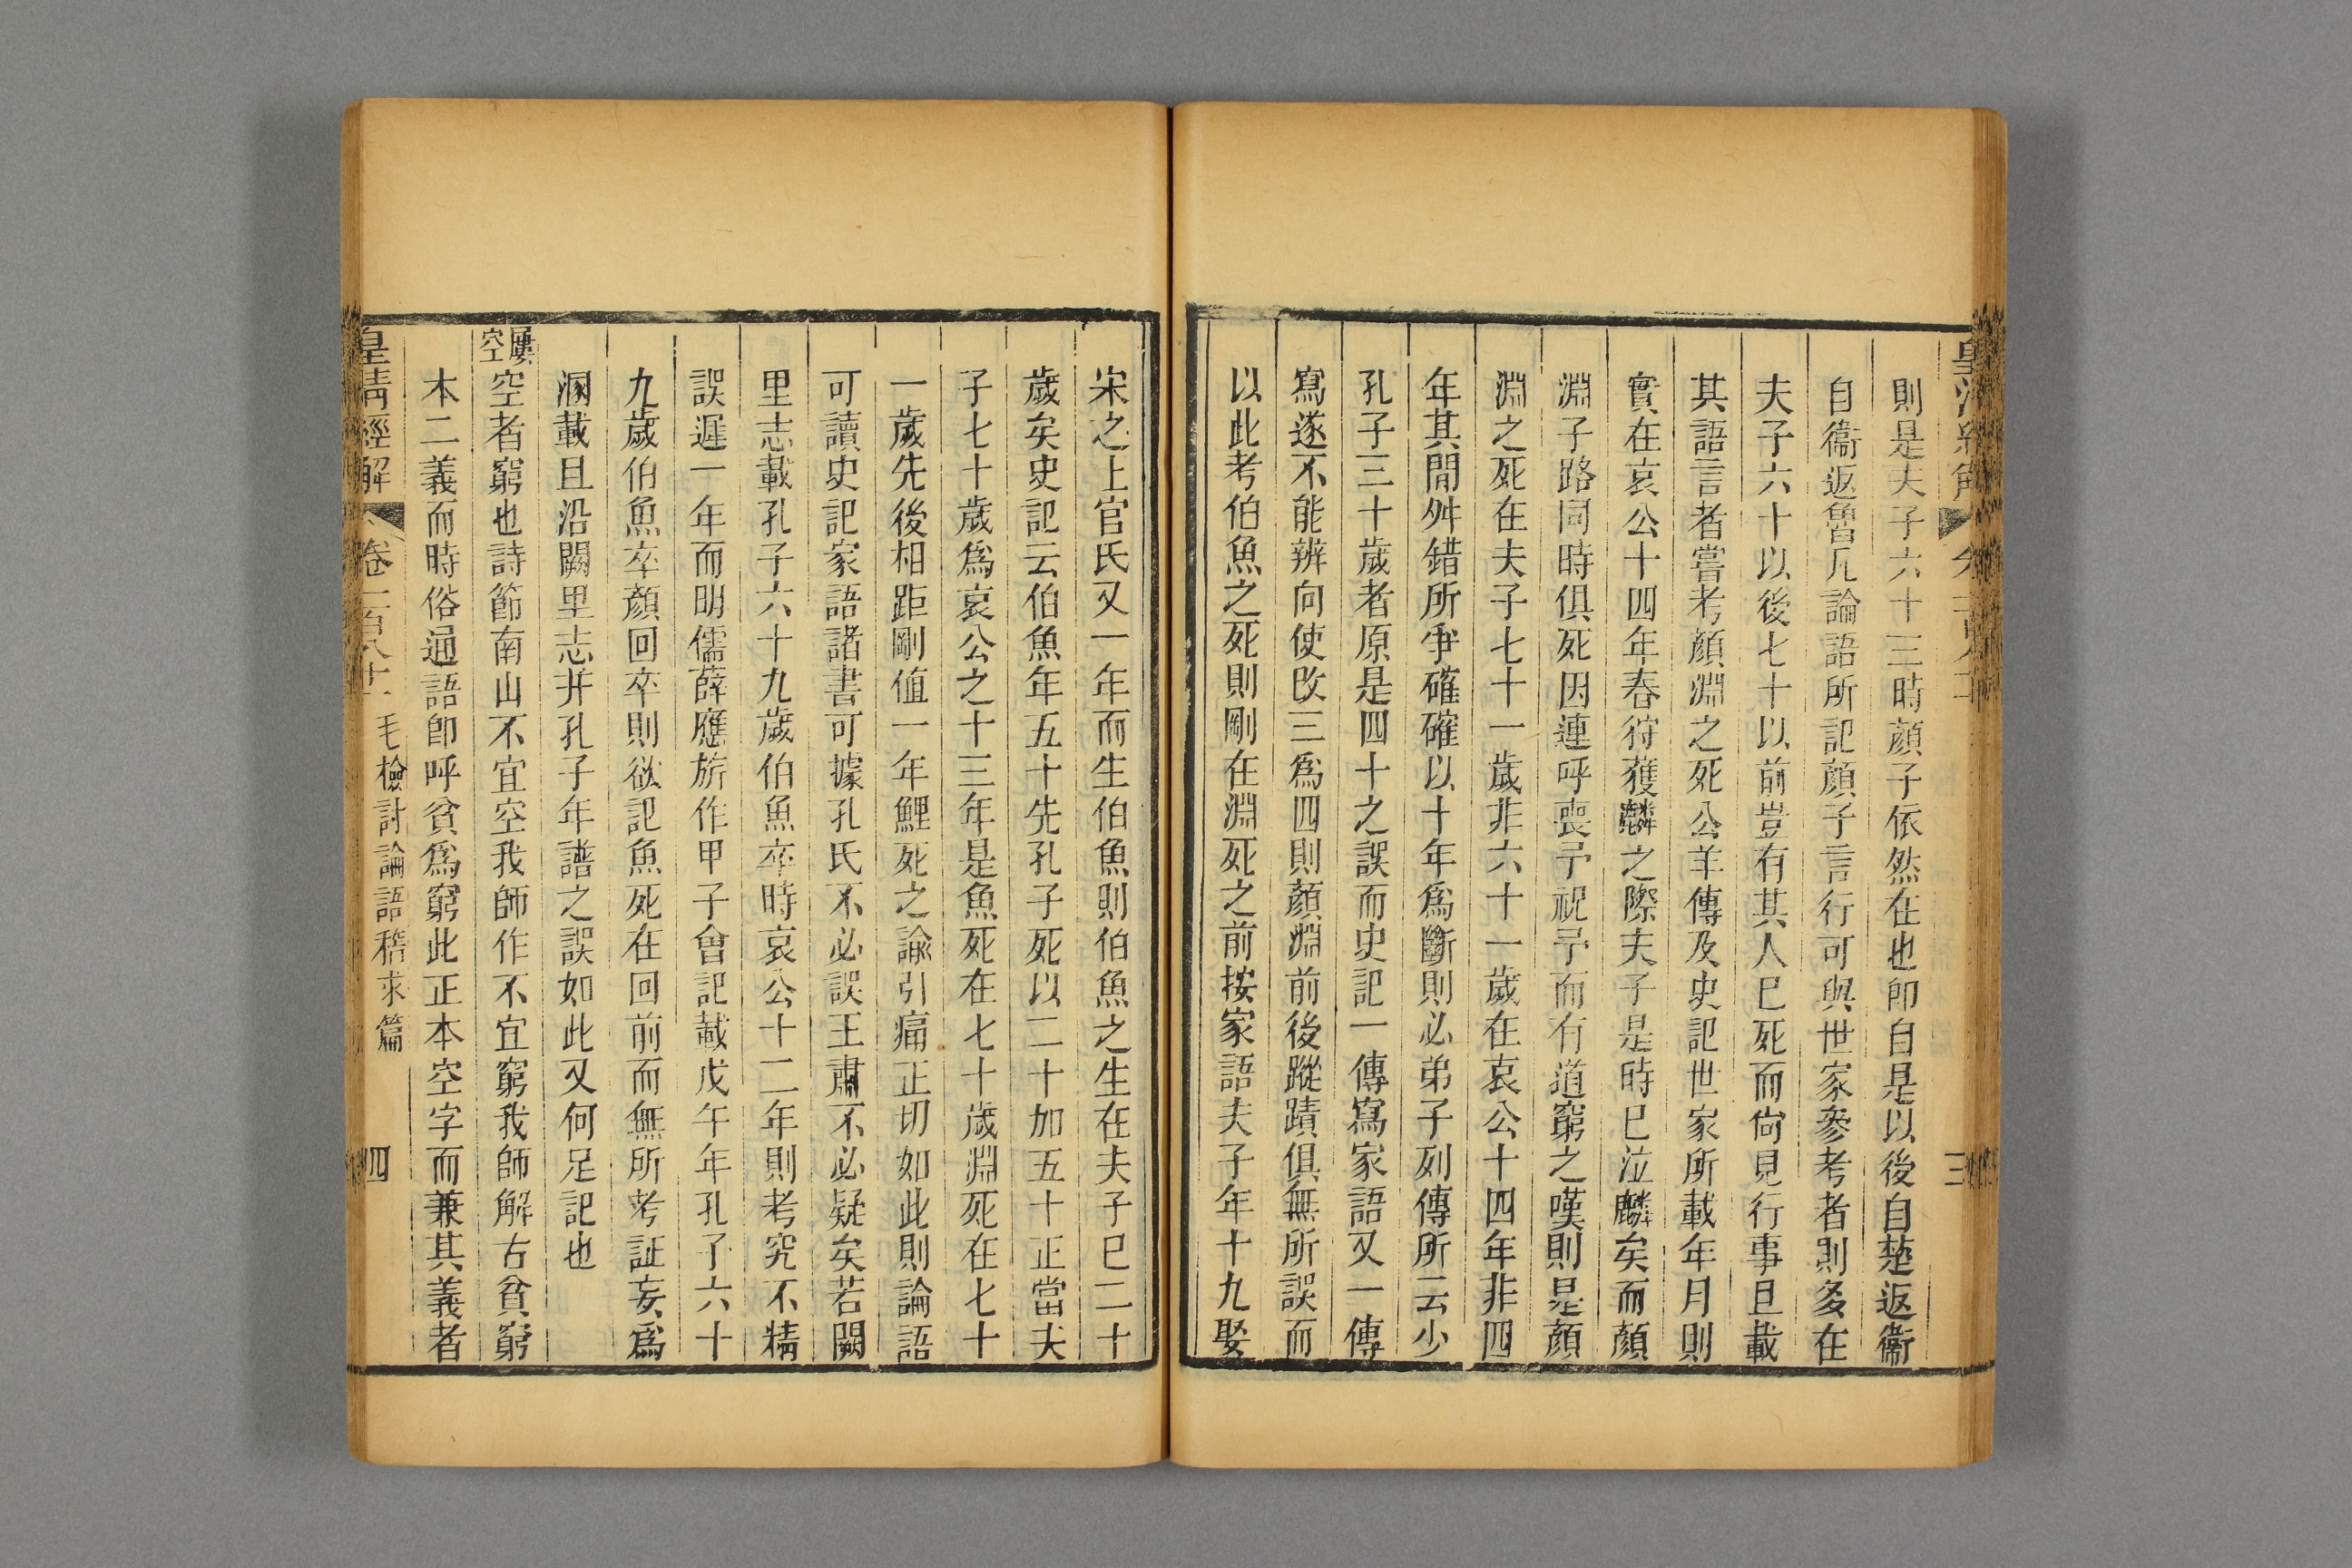 則是夫子六十三時顏子依然在也卽自是以後自楚返衞
自衞返魯凡論語所記顏子言行可與世家參考者則多在
夫子六十以後七十以前豈有其人已死而尙見行事且載
其語言者嘗考顏淵之死公羊傳及史記世家所載年月則
實在哀公十四年春狩獲麟之際夫子是時已泣麟矣而顏
淵子路同時俱死因連呼喪予祝予而有道窮之嘆則是顏
淵之死在夫子七十一歲非六十一歲在哀公十四年非四
年其閒舛錯所爭確確以十年爲斷則必弟子列傳所云少
孔子三十歲者原是四十之誤而史記一傳寫家語又一傳
寫遂不能辨向使改三爲四則顏淵前後蹤蹟俱無所誤而
以此考伯魚之死則剛在淵死之前按家語夫子年十九娶
宋之上官氏又一年而生伯魚則伯魚之生在夫子已二十
歲矣史記云伯魚年五十先孔子死以二十加五十正當夫
子七十歲爲哀公之十三年是魚死在七十歲淵死在七十
一歲先後相距剛値一年鯉死之諭引痛正切如此則論語
可讀史記家語諸書可據孔氏不必誤王肅不必疑矣若闕
里志載孔子六十九歲伯魚卒時哀公十二年則考究不精
誤遲一年而明儒薛應旂作甲子會記載戊午年孔子六十
九歲伯魚卒顏回卒則欲記魚死在回前而無所考証妄爲
溷載且沿闕里志幷孔子年譜之誤如此又何足記也
屢空 空者窮也詩節南山不宜空我師作不宜窮我師解古貧窮
本二義而時俗通語卽呼貧爲窮此正本空字而兼其義者
皇淸經解 卷一百八十 毛檢討論語稽求篇 四